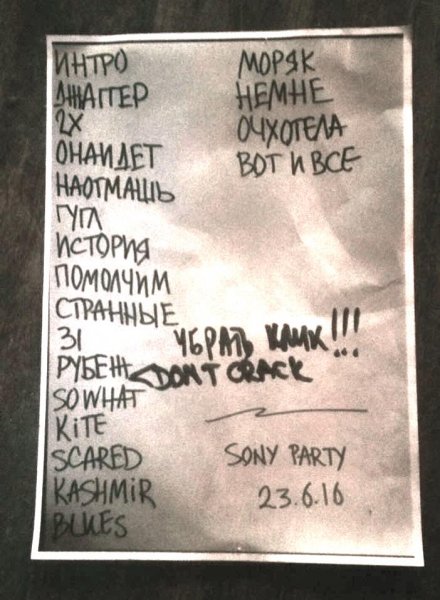 ИНТРО
ДЖАГГЕР
2X
ОНАИДЕТ
НАОТМАШЬ
ГУГЛ
ИСТОРИЯ
ПОМОЛЧИМ
СТРАННЫЕ
31
РУБЕЖ
SO WHAT
KiTE
SCARED
KASHMiR
BLUES
МОРЯК
НЕМНЕ
ОЧХОТЕЛА
ВОТ И ВСЕ
УБРАТЬ КЛИК!!!
DON'T CRACK
SONY PARTY
23.6.16